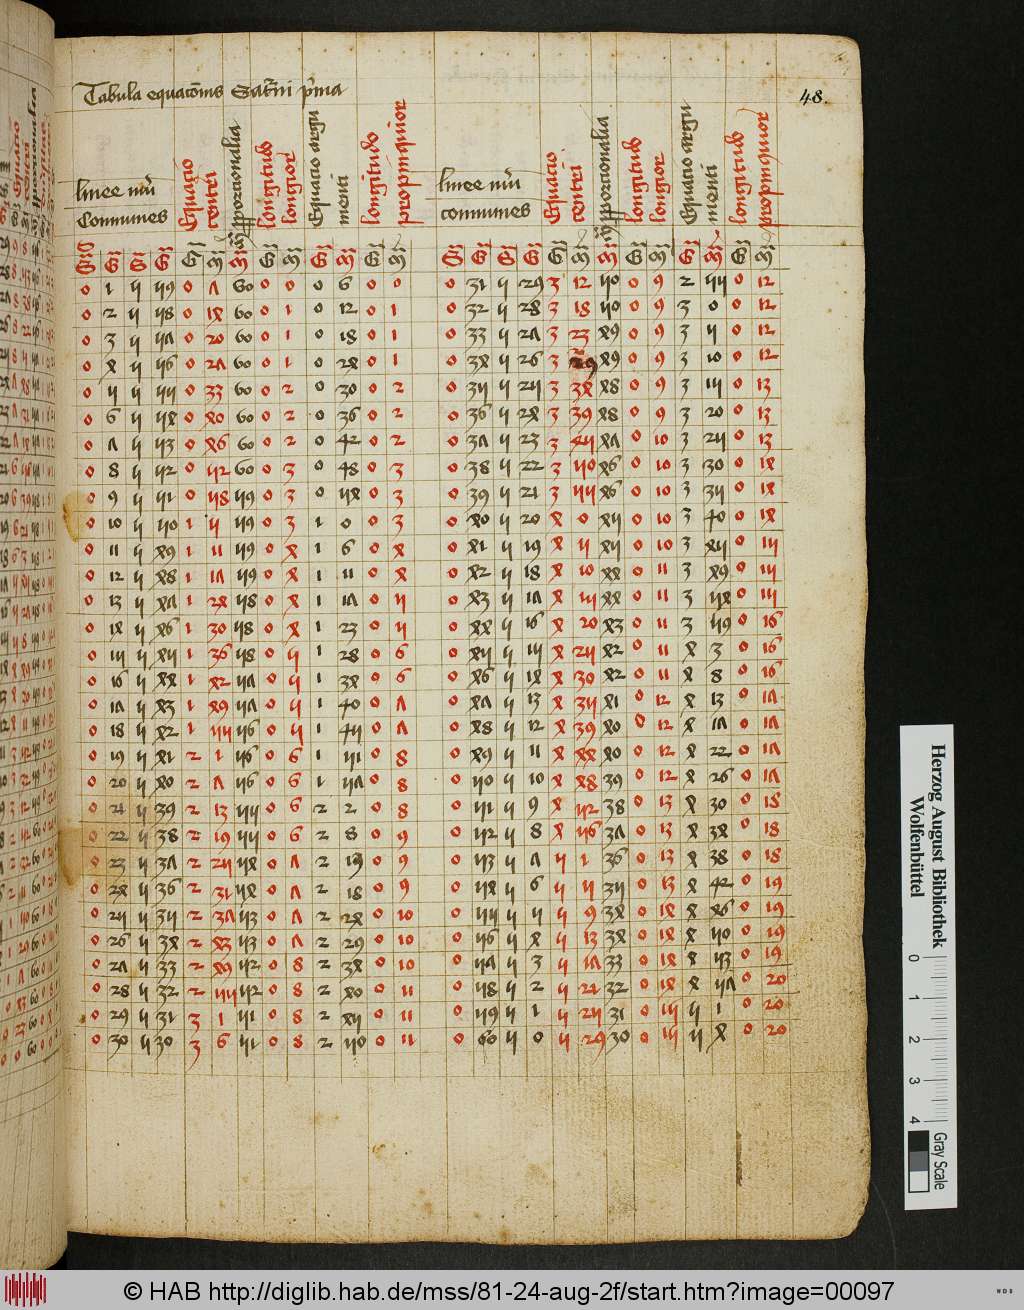 Tabula equacōnis Sat̄rni p̄ma
48.
linee nūi
Comunes
Equacio
centri
mi͠ proporcionalia
longitudo
longior
Equacio argu
menti
longitudo
propinquior
linee nūi
comunes
Equacio
centri
mi͠ proporcionalia
longitudo
longior
Equacio argu
menti
longitudo
propinquior
0 1 5 59 0 7 60 0 0 0 6 0 0 0 31 5 29 3 12 50 0 9 2 55 0 12
0 2 5 58 0 14 60 0 1 0 12 0 1 0 32 5 28 3 18 50 0 9 3 0 0 12
0 3 5 57 0 20 60 0 1 0 18 0 1 0 33 5 27 3 23 49 0 9 3 5 0 12
0 4 5 56 0 27 60 0 1 0 24 0 1 0 34 5 26 3 29 49 0 9 3 10 0 12
0 5 5 55 0 33 60 0 2 0 30 0 2 0 35 5 25 3 34 48 0 9 3 15 0 13
0 6 5 54 0 40 60 0 2 0 36 0 2 0 36 5 24 3 39 48 0 9 3 20 0 13
0 7 5 53 0 46 60 0 2 0 42 0 2 0 37 5 23 3 45 47 0 10 3 25 0 13
0 8 5 52 0 52 60 0 3 0 48 0 3 0 38 5 22 3 50 46 0 10 3 30 0 14
0 9 5 51 0 58 59 0 3 0 54 0 3 0 39 5 21 3 55 46 0 10 3 35 0 14
0 10 5 50 1 5 59 0 3 1 0 0 3 0 40 5 20 4 0 45 0 10 3 40 0 14
0 11 5 49 1 11 59 0 4 1 6 0 4 0 41 5 19 4 5 45 0 10 3 45 0 15
0 12 5 48 1 17 59 0 4 1 11 0 4 0 42 5 18 4 10 44 0 11 3 49 0 15
0 13 5 47 1 24 58 0 4 1 17 0 5 0 43 5 17 4 15 44 0 11 3 54 0 15
0 14 5 46 1 30 58 0 4 1 23 0 5 0 44 5 16 4 20 43 0 11 3 59 0 16
0 15 5 45 1 36 58 0 5 1 28 0 6 0 45 5 15 4 25 42 0 11 4 3 0 16
0 16 5 44 1 42 57 0 5 1 34 0 6 0 46 5 14 4 30 42 0 11 4 8 0 16
0 17 5 43 1 49 57 0 5 1 40 0 7 0 47 5 13 4 35 41 0 12 4 13 0 17
0 18 5 42 1 55 56 0 5 1 45 0 7 0 48 5 12 4 39 40 0 12 4 17 0 17
0 19 5 41 2 1 56 0 6 1 51 0 8 0 49 5 11 4 44 40 0 12 4 22 0 17
0 20 5 40 2 7 56 0 6 1 57 0 8 0 50 5 10 4 48 39 0 12 4 26 0 17
0 21 5 39 2 13 55 0 6 2 2 0 8 0 51 5 9 4 52 38 0 13 4 30 0 18
0 22 5 38 2 19 55 0 6 2 8 0 9 0 52 5 8 4 56 37 0 13 4 34 0 18
0 23 5 37 2 25 54 0 7 2 13 0 9 0 53 5 7 5 1 36 0 13 4 38 0 18
0 24 5 36 2 31 54 0 7 2 18 0 9 0 54 5 6 5 5 35 0 13 4 42 0 19
0 25 5 35 2 37 53 0 7 2 24 0 10 0 55 5 5 5 9 34 0 14 4 46 0 19
0 26 5 34 2 43 53 0 7 2 29 0 10 0 56 5 4 5 13 34 0 14 4 50 0 19
0 27 5 33 2 49 52 0 8 2 34 0 10 0 57 5 3 5 17 33 0 14 4 53 0 19
0 28 5 32 2 55 52 0 8 2 40 0 11 0 58 5 2 5 21 32 0 14 4 57 0 20
0 29 5 31 3 1 51 0 8 2 45 0 11 0 59 5 1 5 25 31 0 15 5 1 0 20
0 30 5 30 3 6 51 0 8 2 50 0 11 0 60 5 0 5 29 30 0 15 5 4 0 20
Herzog August Bibliothek
Wolfenbüttel
0 1 2 3 4
Gray Scale
© HAB http://diglib.hab.de/mss/81-24-aug-2f/start.htm?image=00097